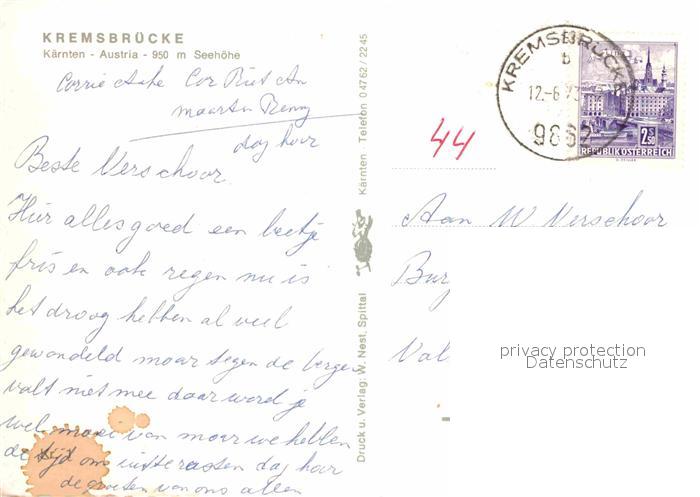 KREMSBRÜCKE
Kärnten - Austria - 950 m Seehöhe
Corrie Aake Cor Riet An
maarten Renny
dag hoor
Beste Verschoor.
Hier alles goed een beetje
fris en ook regen nu is
het droog hebben al veel
gewandeld maar tegen de bergen
valt niet mee daar word je
wel moe van maar we hebben
de tijd om uitterusten dag hoor
de groeten van ons allen
Druck u. Verlag: W. Nest, Spittal
Kärnten Telefon 0 47 62 / 22 45
44
KREMSBRÜCKE
b
12.-6.73
9862
2.50
REPUBLIK ÖSTERREICH
Aan W Verschoor
Bur
Val
privacy protection
Datenschutz